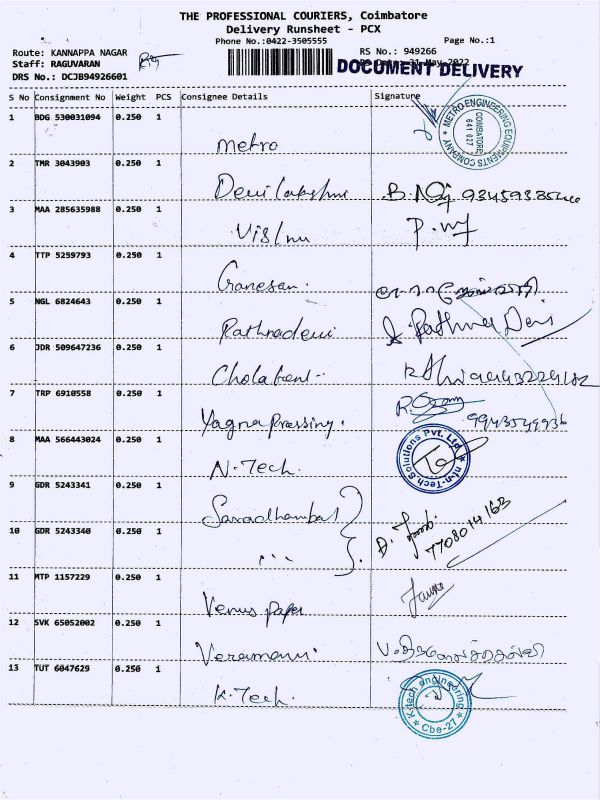 THE PROFESSIONAL COURIERS, Coimbatore
Delivery Runsheet - PCX
Phone No.:0422-3505555 Page No.:1
Route: KANNAPPA NAGAR RS No.: 949266
Staff: RAGUVARAN Date: 31 May 2022
DOCUMENT DELIVERY
DRS No.: DCJB94926601
S No Consignment No Weight PCS Consignee Details Signature
1 BDG 530031094 0.250 1 Metro
METRO ENGINEERING EQUIPMENTS COMPANY * COIMBATORE 641 027
2 TMR 3043903 0.250 1 Devilakshmi
3 MAA 285635988 0.250 1 Vishnu
4 TTP 5259793 0.250 1 Ganesan.
5 NGL 6824643 0.250 1 Rathnadevi Rathna Devi
6 JDR 509647236 0.250 1
7 TRP 6910558 0.250 1 Yagna Pressing.
8 MAA 566443024 0.250 1 N.Tech.
Tech Solutions Pvt. Ltd.
9 GDR 5243341 0.250 1 Saradhambal
10 GDR 5243340 0.250 1 ... 7708014163
11 MTP 1157229 0.250 1 Venus paper
12 SVK 65052002 0.250 1 Veramani.
13 TUT 6047629 0.250 1 K.Tech.
K-tech engineering * Cbe-27 *